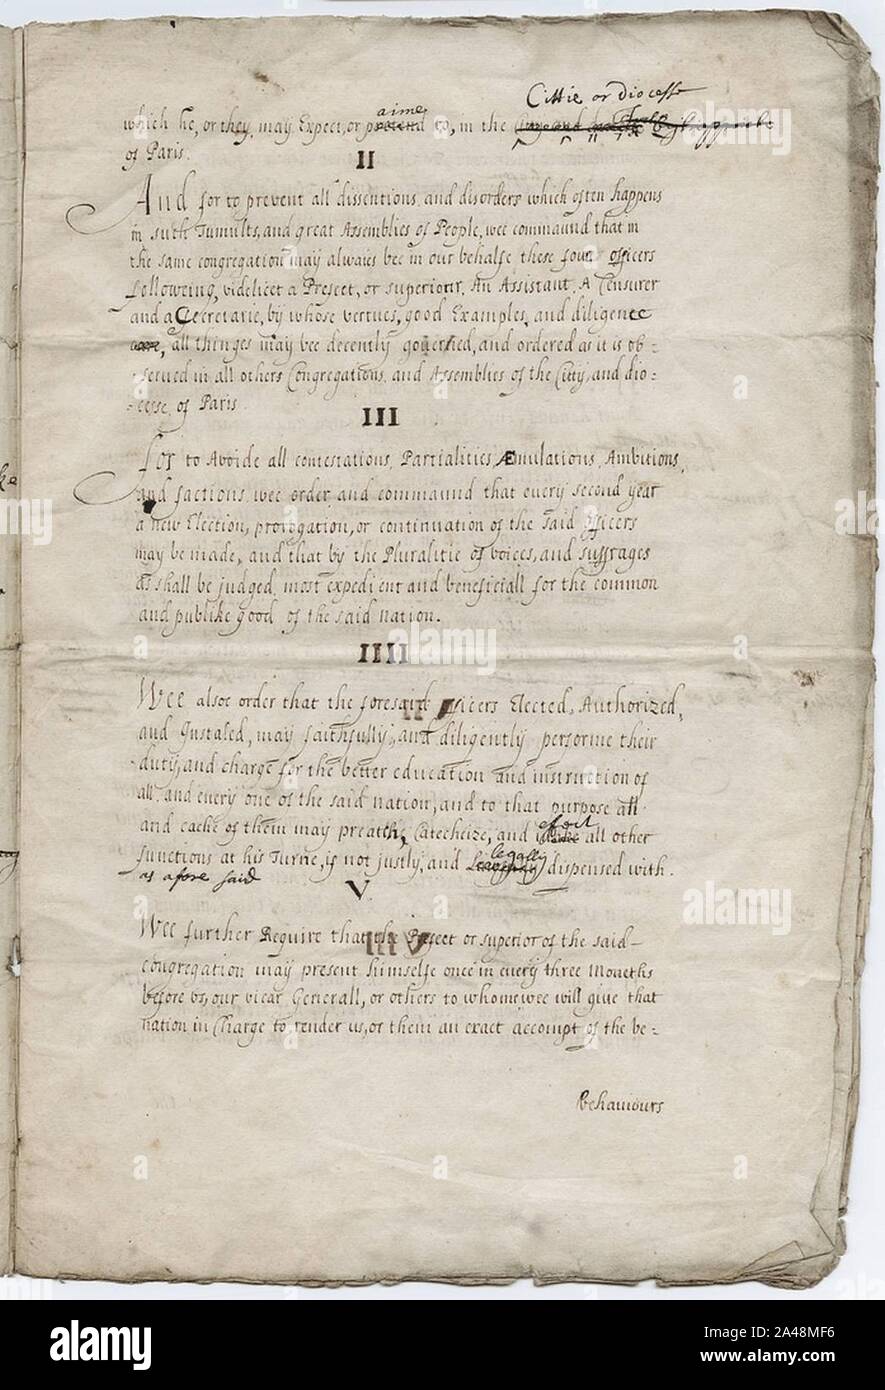 Cittie or Diocesse
aime
which he, or they may Expect, or pretend to, in the
of Paris.
II
And for to prevent all dissentions, and disorders which often happens
in such Tumults, and great Assemblies of People, wee commaund that in
the same congregation may alwaies bee in our behalfe these four officers
followeing, videlicet a Prefect, or superiour, An Assistant, A Censurer
and a Secretarie, by whose vertues, good Examples, and diligence
care, all thinges may bee decently governed, and ordered as it is ob-
-served in all others Congregations, and Assemblies of the Citty, and dio-
-cesse of Paris
III
For to Avoide all contestations, Partialities, Æmulations, Ambitions,
and factions, wee order, and commaund that every second year
a new Election, prorogation, or continuation of the said officers
may be made, and that by the Pluralitie of voices, and suffrages
as shall be judged most expedient and beneficiall for the common
and publike good of the said nation.
IIII
Wee alsoe order that the foresaid officers Elected, Authorized,
and Instaled, may faithfully, and diligently performe their
duty, and charge for the better education and instruction of
all, and every one of the said nation, and to that purpose all
and eache of them may preatch, Catecheize, and all other
functions at his Turne, if not justly, and legally dispensed with.
as afore said
V.
Wee further Require that the Prefect or superior of the said
congregation may present himselfe once in every three Moneths
before us, our vicar Generall, or others to whome wee will give that
nation in Charge to render us, or them an exact accompt of the be-
behaviours
alamy
alamy stock photo
Image ID: 2A48MF6
www.alamy.com